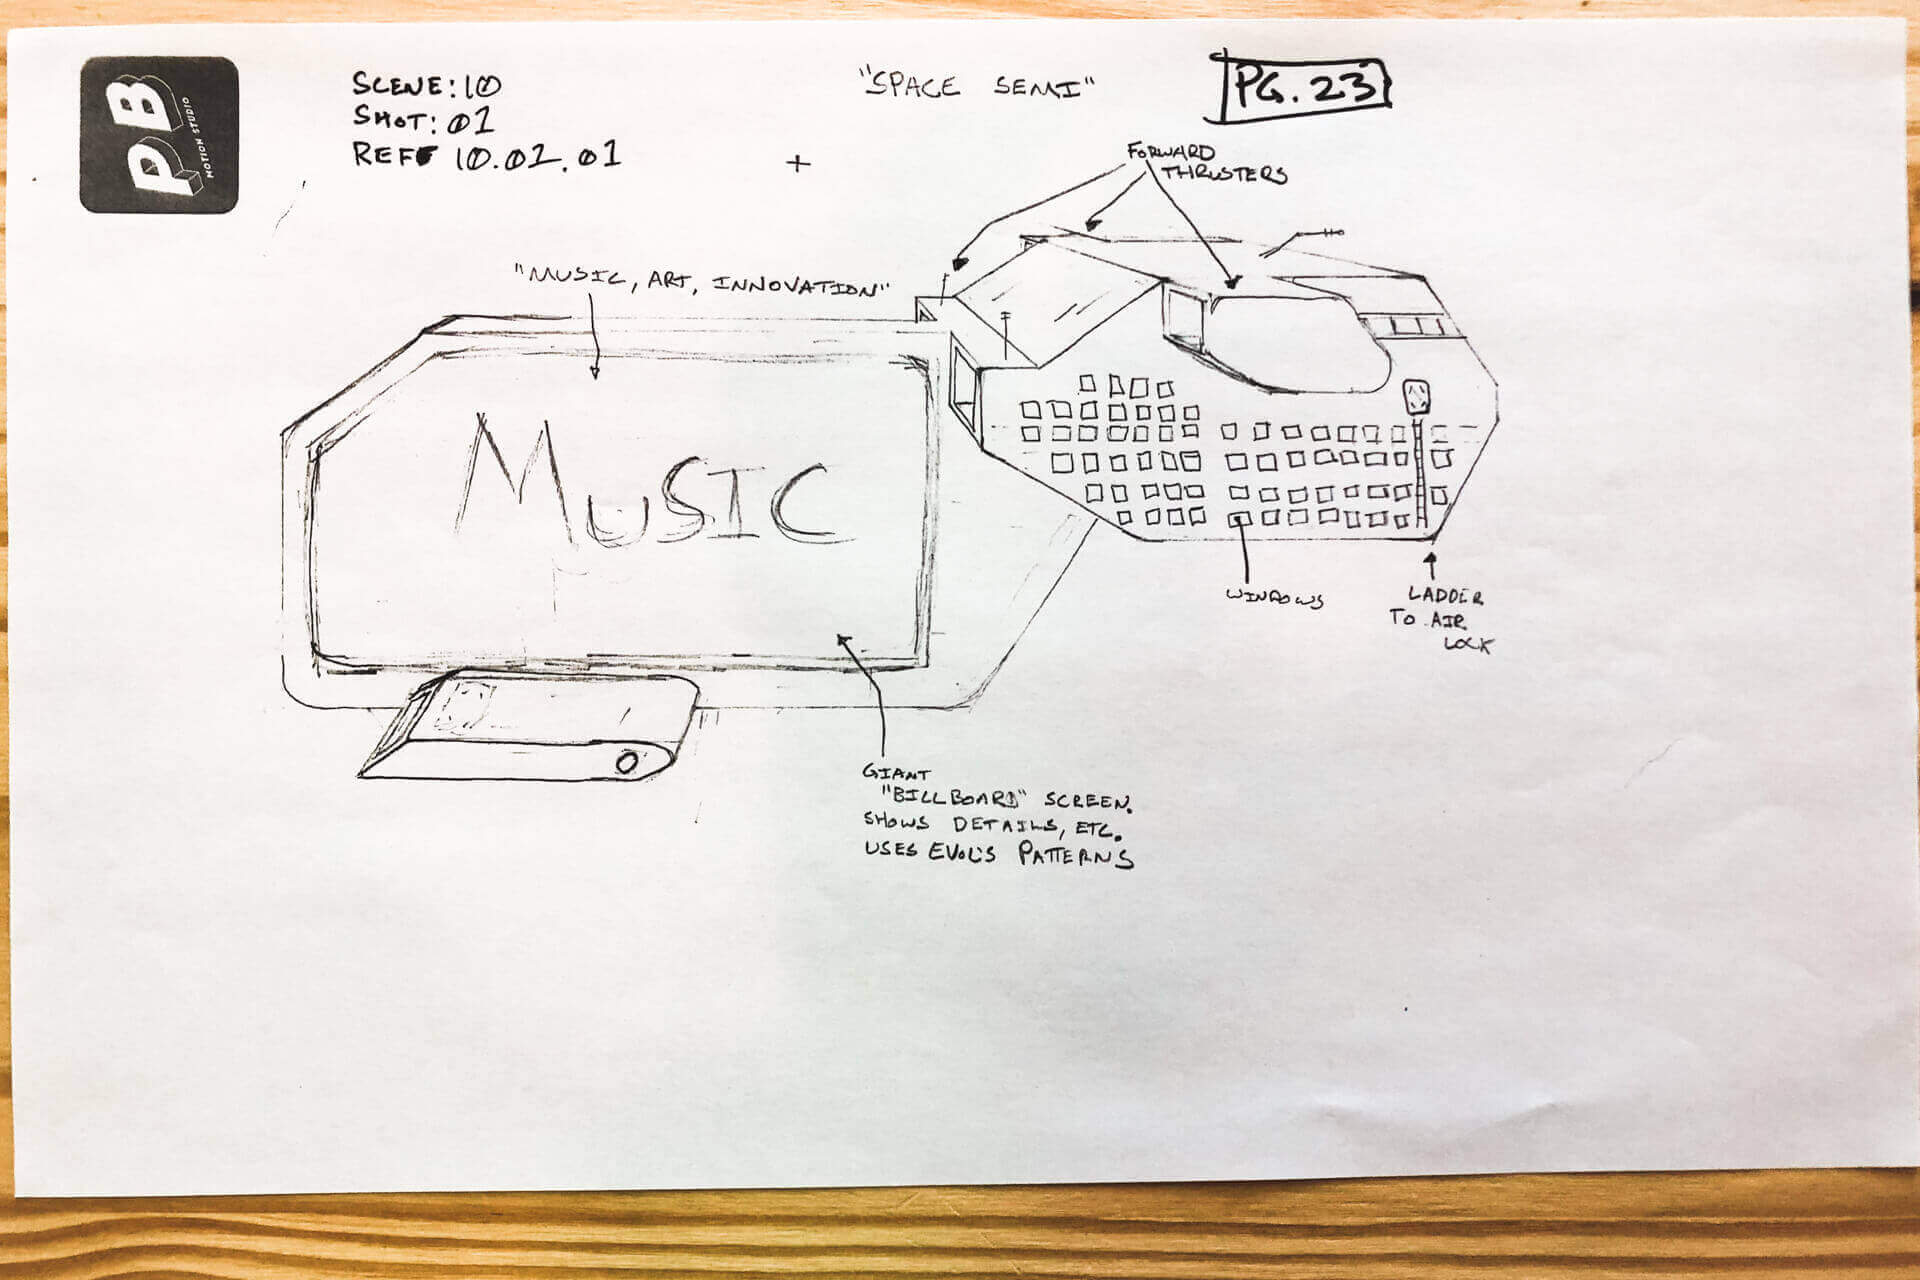 PB
MOTION STUDIO
SCENE: 10
SHOT: 01
REF 10.01.01
"SPACE SEMI"
PG. 23
FORWARD
THRUSTERS
"MUSIC, ART, INNOVATION"
MUSIC
WINDOWS
LADDER
TO AIR
LOCK
GIANT
"BILLBOARD" SCREEN.
SHOWS DETAILS, ETC.
USES EVOL'S PATTERNS